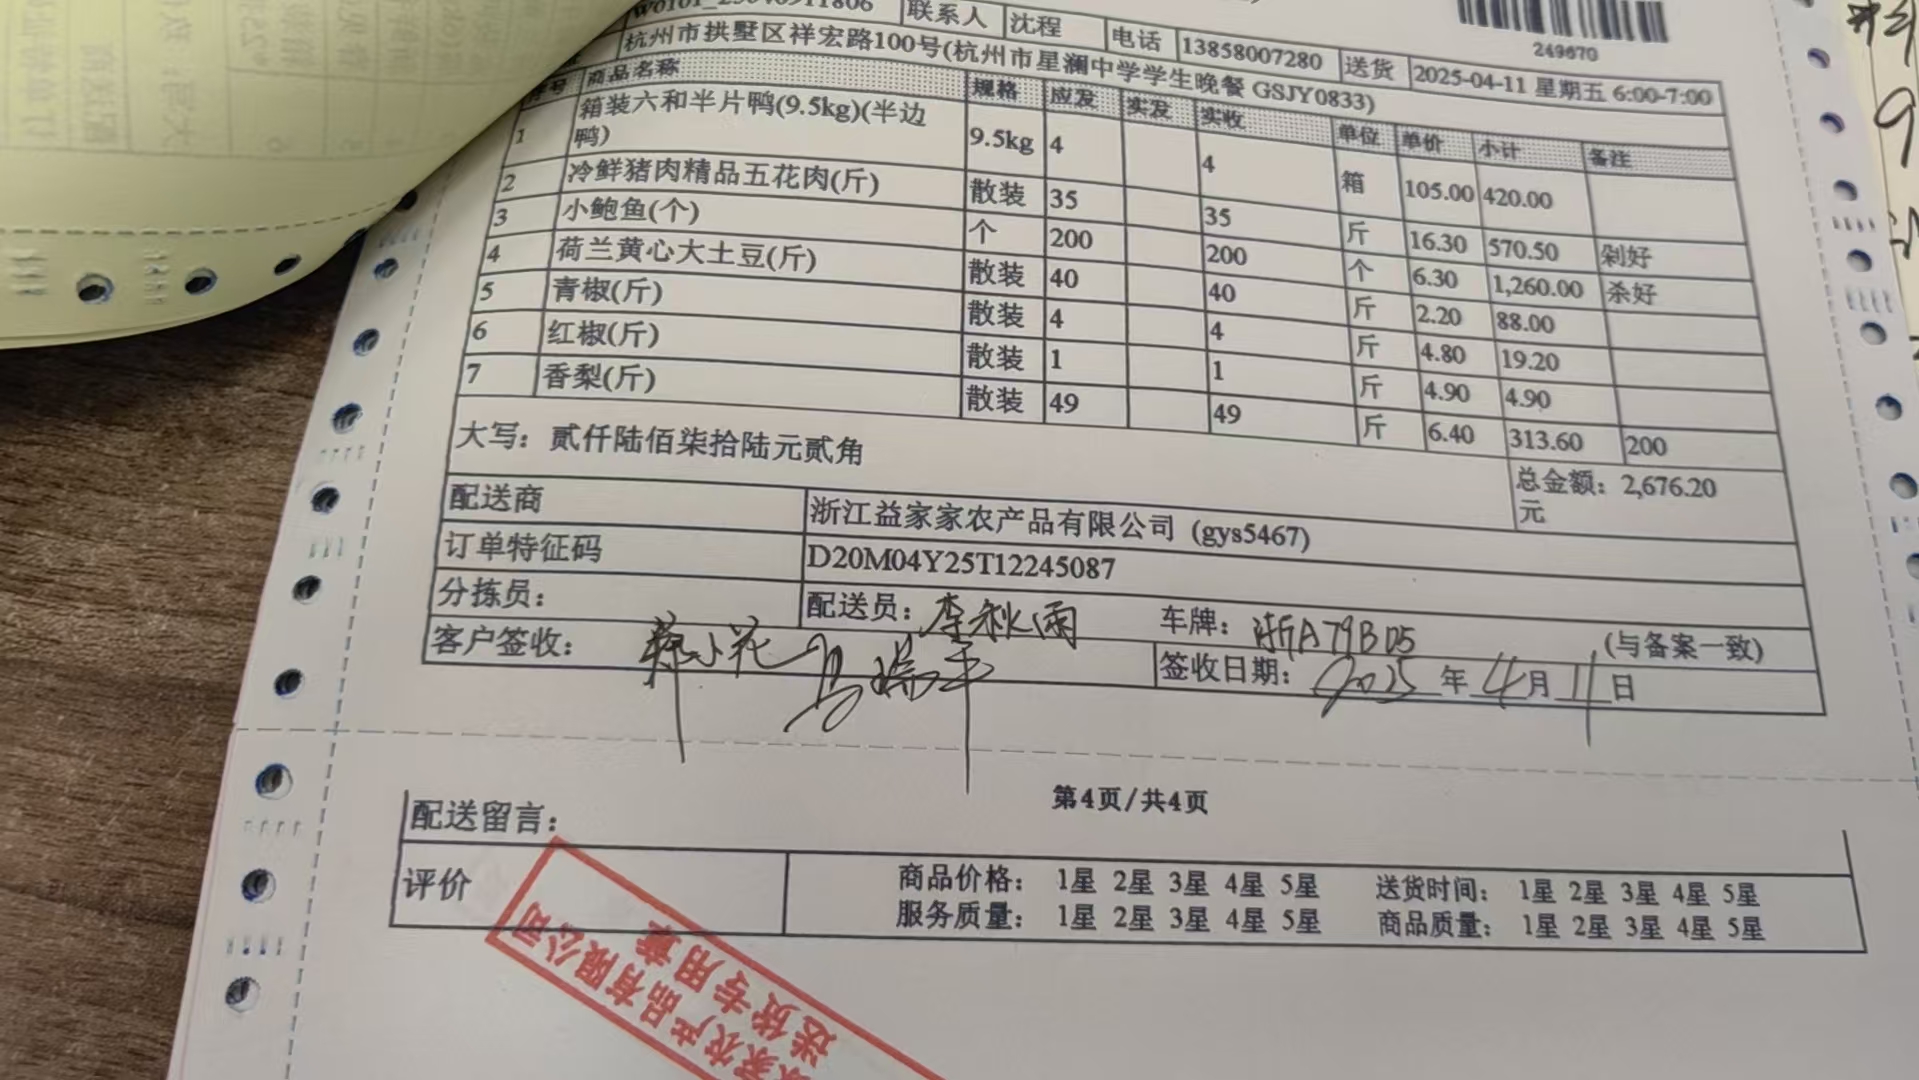 联系人 沈程 电话 13858007280 送货 2025-04-11 星期五 6:00-7:00
249670
杭州市拱墅区祥宏路100号(杭州市星澜中学学生晚餐 GSJY0833)
序号 商品名称 规格 应发 实发 实收 单位 单价 小计 备注
1 箱装六和半片鸭(9.5kg)(半边鸭) 9.5kg 4 4 箱 105.00 420.00
2 冷鲜猪肉精品五花肉(斤) 散装 35 35 斤 16.30 570.50 剁好
3 小鲍鱼(个) 个 200 200 个 6.30 1,260.00 杀好
4 荷兰黄心大土豆(斤) 散装 40 40 斤 2.20 88.00
5 青椒(斤) 散装 4 4 斤 4.80 19.20
6 红椒(斤) 散装 1 1 斤 4.90 4.90
7 香梨(斤) 散装 49 49 斤 6.40 313.60 200
大写：贰仟陆佰柒拾陆元贰角 总金额：2,676.20元
配送商 浙江益家家农产品有限公司 (gys5467)
订单特征码 D20M04Y25T12245087
分拣员： 配送员：李秋雨 车牌：浙A79B05 (与备案一致)
客户签收： 签收日期：2025年4月11日
第4页/共4页
配送留言：
评价 商品价格： 1星 2星 3星 4星 5星 送货时间： 1星 2星 3星 4星 5星
服务质量： 1星 2星 3星 4星 5星 商品质量： 1星 2星 3星 4星 5星
家农产品有限公司
送货专用章